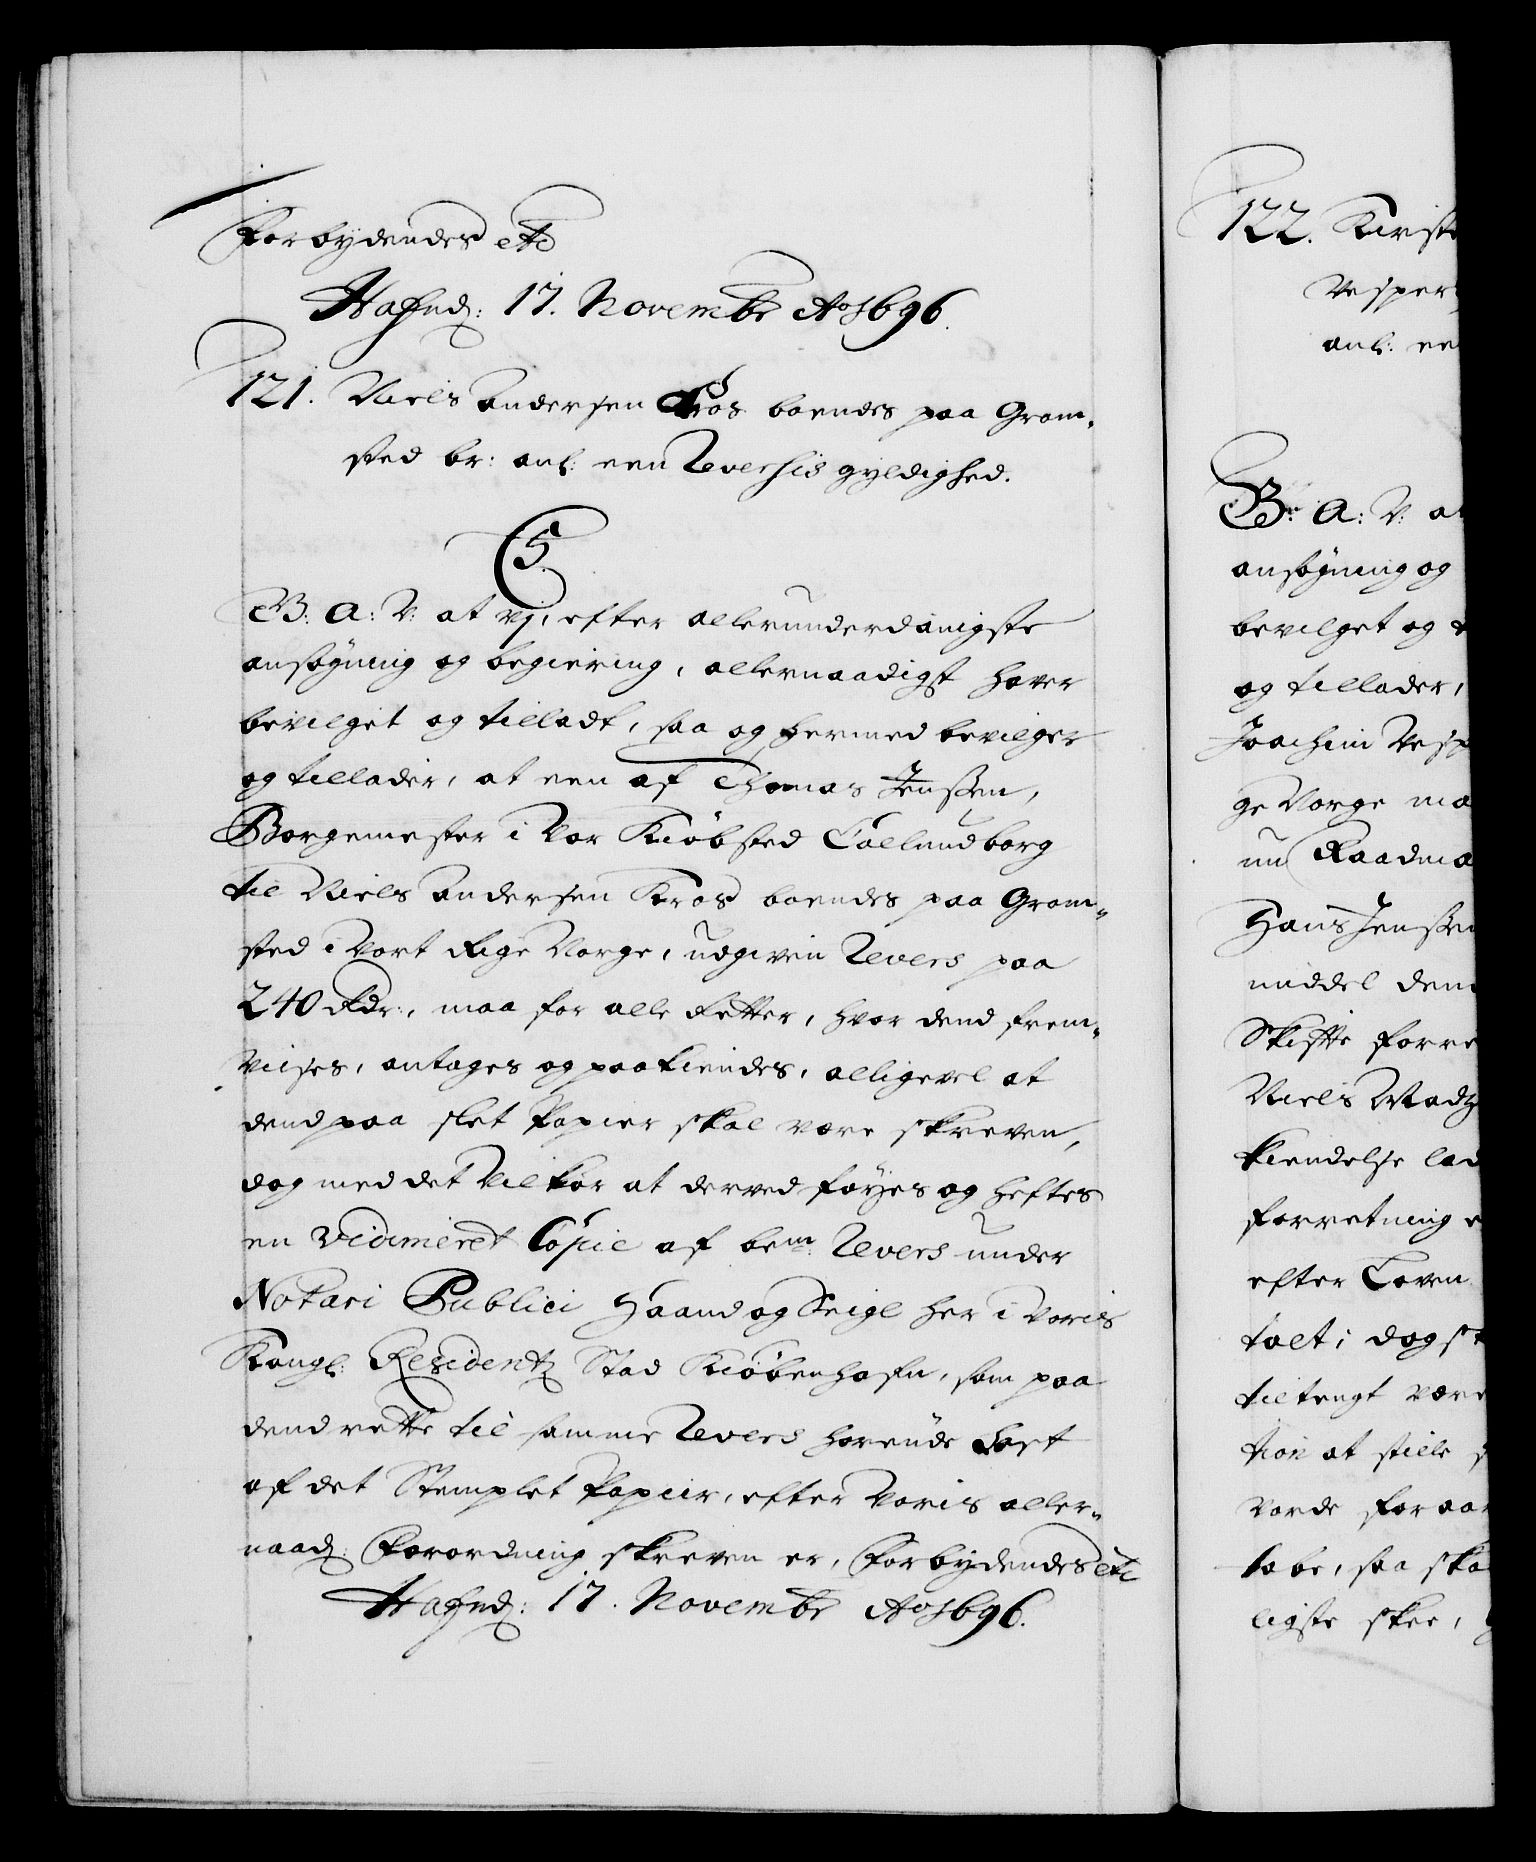 Forbydendes etc
Hafnd: 17. Novembr Ao 1696.
121. Niels Andersen Kros boendes paa Grom-
sted br: anl: een Reversis gyldighed.
C5.
G: A: V: at vj, efter allerunderdanigste
ansøgning og begiering, allernaadigst hafver
bevilget og tilladt, saa og hermed bevilger
og tillader, at een af Thomas Jenssen,
Borgemester i Vor Kiøbsted Callundborg
til Niels Andersen Kros boendes paa Grom-
sted i Vort Rige Norge, udgiven Revers paa
240 Rdr:, maa for alle Retter, hvor dend frem-
viises, antages og paakiendes, alligevel at
dend paa slet Papier skal være skreven,
dog med det Vilkor at derved føyes og heftes
en Vidimeret Copie af bem.te Revers under
Notari Publici Haand og Seigl her i Voris
Kongl: Residentz Stad Kiøbenhafn, som paa
dend rette til samme Revers hørende Sort
af det Stemplet Papiir, efter Voris aller-
naad: Forordning skreven er, Forbydendes etc
Hafnd: 17. Novembr Ao 1696.
122. Kirste
Vesper
anl: ee
G: A: V: at
ansøgning og
bevilget og
og tillader,
Joachim Vesp
ge Norge ma
nu Raadma
Hans Jenssen
middel dem
Skifte forre
Niels Madtz
kiendelse lad
forretning e
efter Loven
talt; dog st
tiltengt være
tion at stille
vorde for aar
løbe, saa ska
ligste skee,